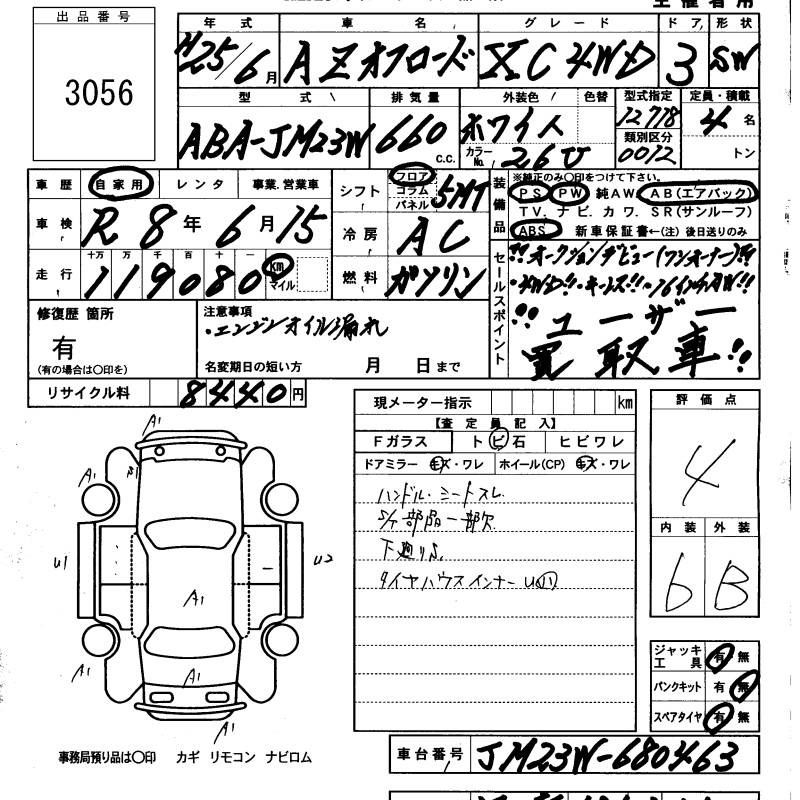 出品番号
3056
年式 車名 グレード ドア 形状
H25/6月 AZオフロード XC 4WD 3 SW
型式 排気量 外装色 色替 型式指定 定員・積載
ABA-JM23W 660 C.C. ホワイト 12778 4名
カラーNo. 26U 類別区分 0072 トン
車歴 自家用 レンタ 事業.営業車 シフト フロア コラム パネル 5MT
装備品 ※純正のみ○印をつけて下さい。
PS PW 純AW AB(エアバック)
TV. ナビ. カワ. SR(サンルーフ)
ABS 新車保証書←(注)後日送りのみ
車検 R8年6月15 冷房 AC
走行 十万 万 千 百 十 一
119080 km マイル 燃料 ガソリン
セールスポイント
!!オークションデビュー(ワンオーナー)!!
・4WD!!・キーレス!!・16インチAW!!
!!ユーザー
買取車!!
修復歴 箇所
有
(有の場合は○印を)
注意事項
・エンジンオイル漏れ
名変期日の短い方 月 日まで
リサイクル料 8440円
現メーター指示 km
【査定員記入】
Fガラス トビ石 ヒビワレ
ドアミラー キズ・ワレ ホイール(CP) キズ・ワレ
ハンドル・シートスレ
下廻りS
タイヤハウスインナー U
評価点
4
内装 外装
6 B
A1
A1
A1
U1
U2
A1
A1
A1
A1
ジャッキ工具 有 無
パンクキット 有 無
スペアタイヤ 有 無
事務局預り品は○印 カギ リモコン ナビロム
車台番号 JM23W-680463